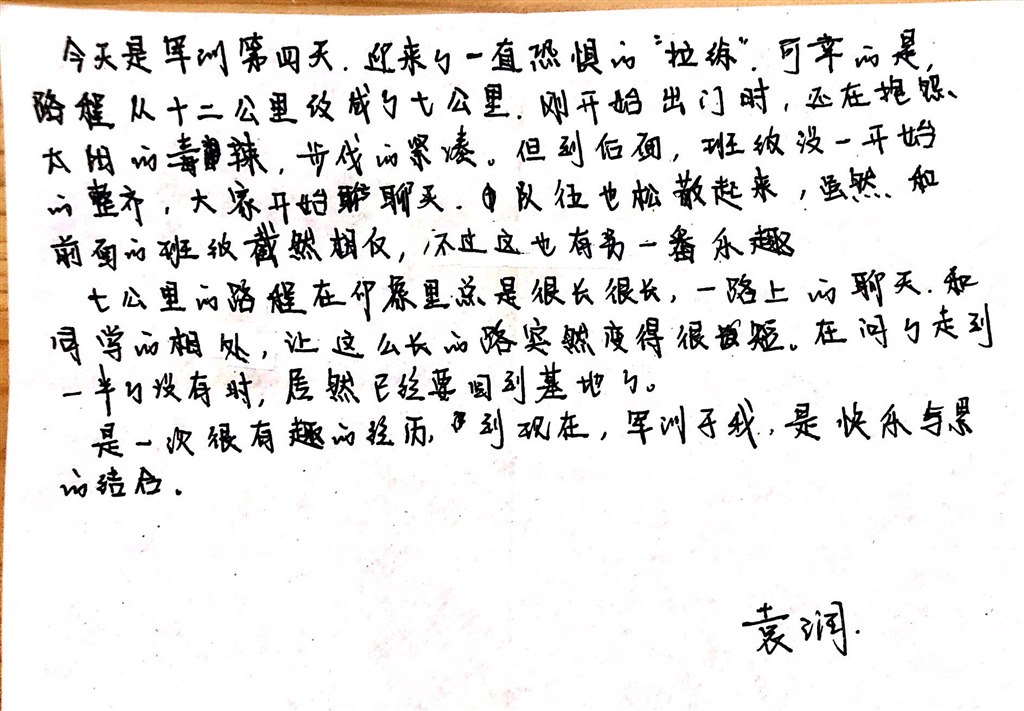 今天是军训第四天.迎来了一直恐惧的“拉练”.可幸的是,
路程从十二公里改成了七公里.刚开始出门时,还在抱怨、
太阳的毒辣,步伐的紧凑。但到后面,班级没一开始
的整齐,大家开始聊天.队伍也松散起来,虽然和
前面的班级截然相反,不过这也有另一番乐趣
七公里的路程在印象里总是很长很长,一路上的聊天.和
同学的相处,让这么长的路突然变得很短。在问了走到
一半了没有时,居然已经要回到基地了。
是一次很有趣的经历,到现在,军训于我,是快乐与累
的结合.
袁润.